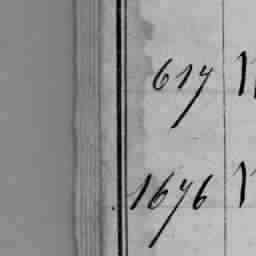 617
1676